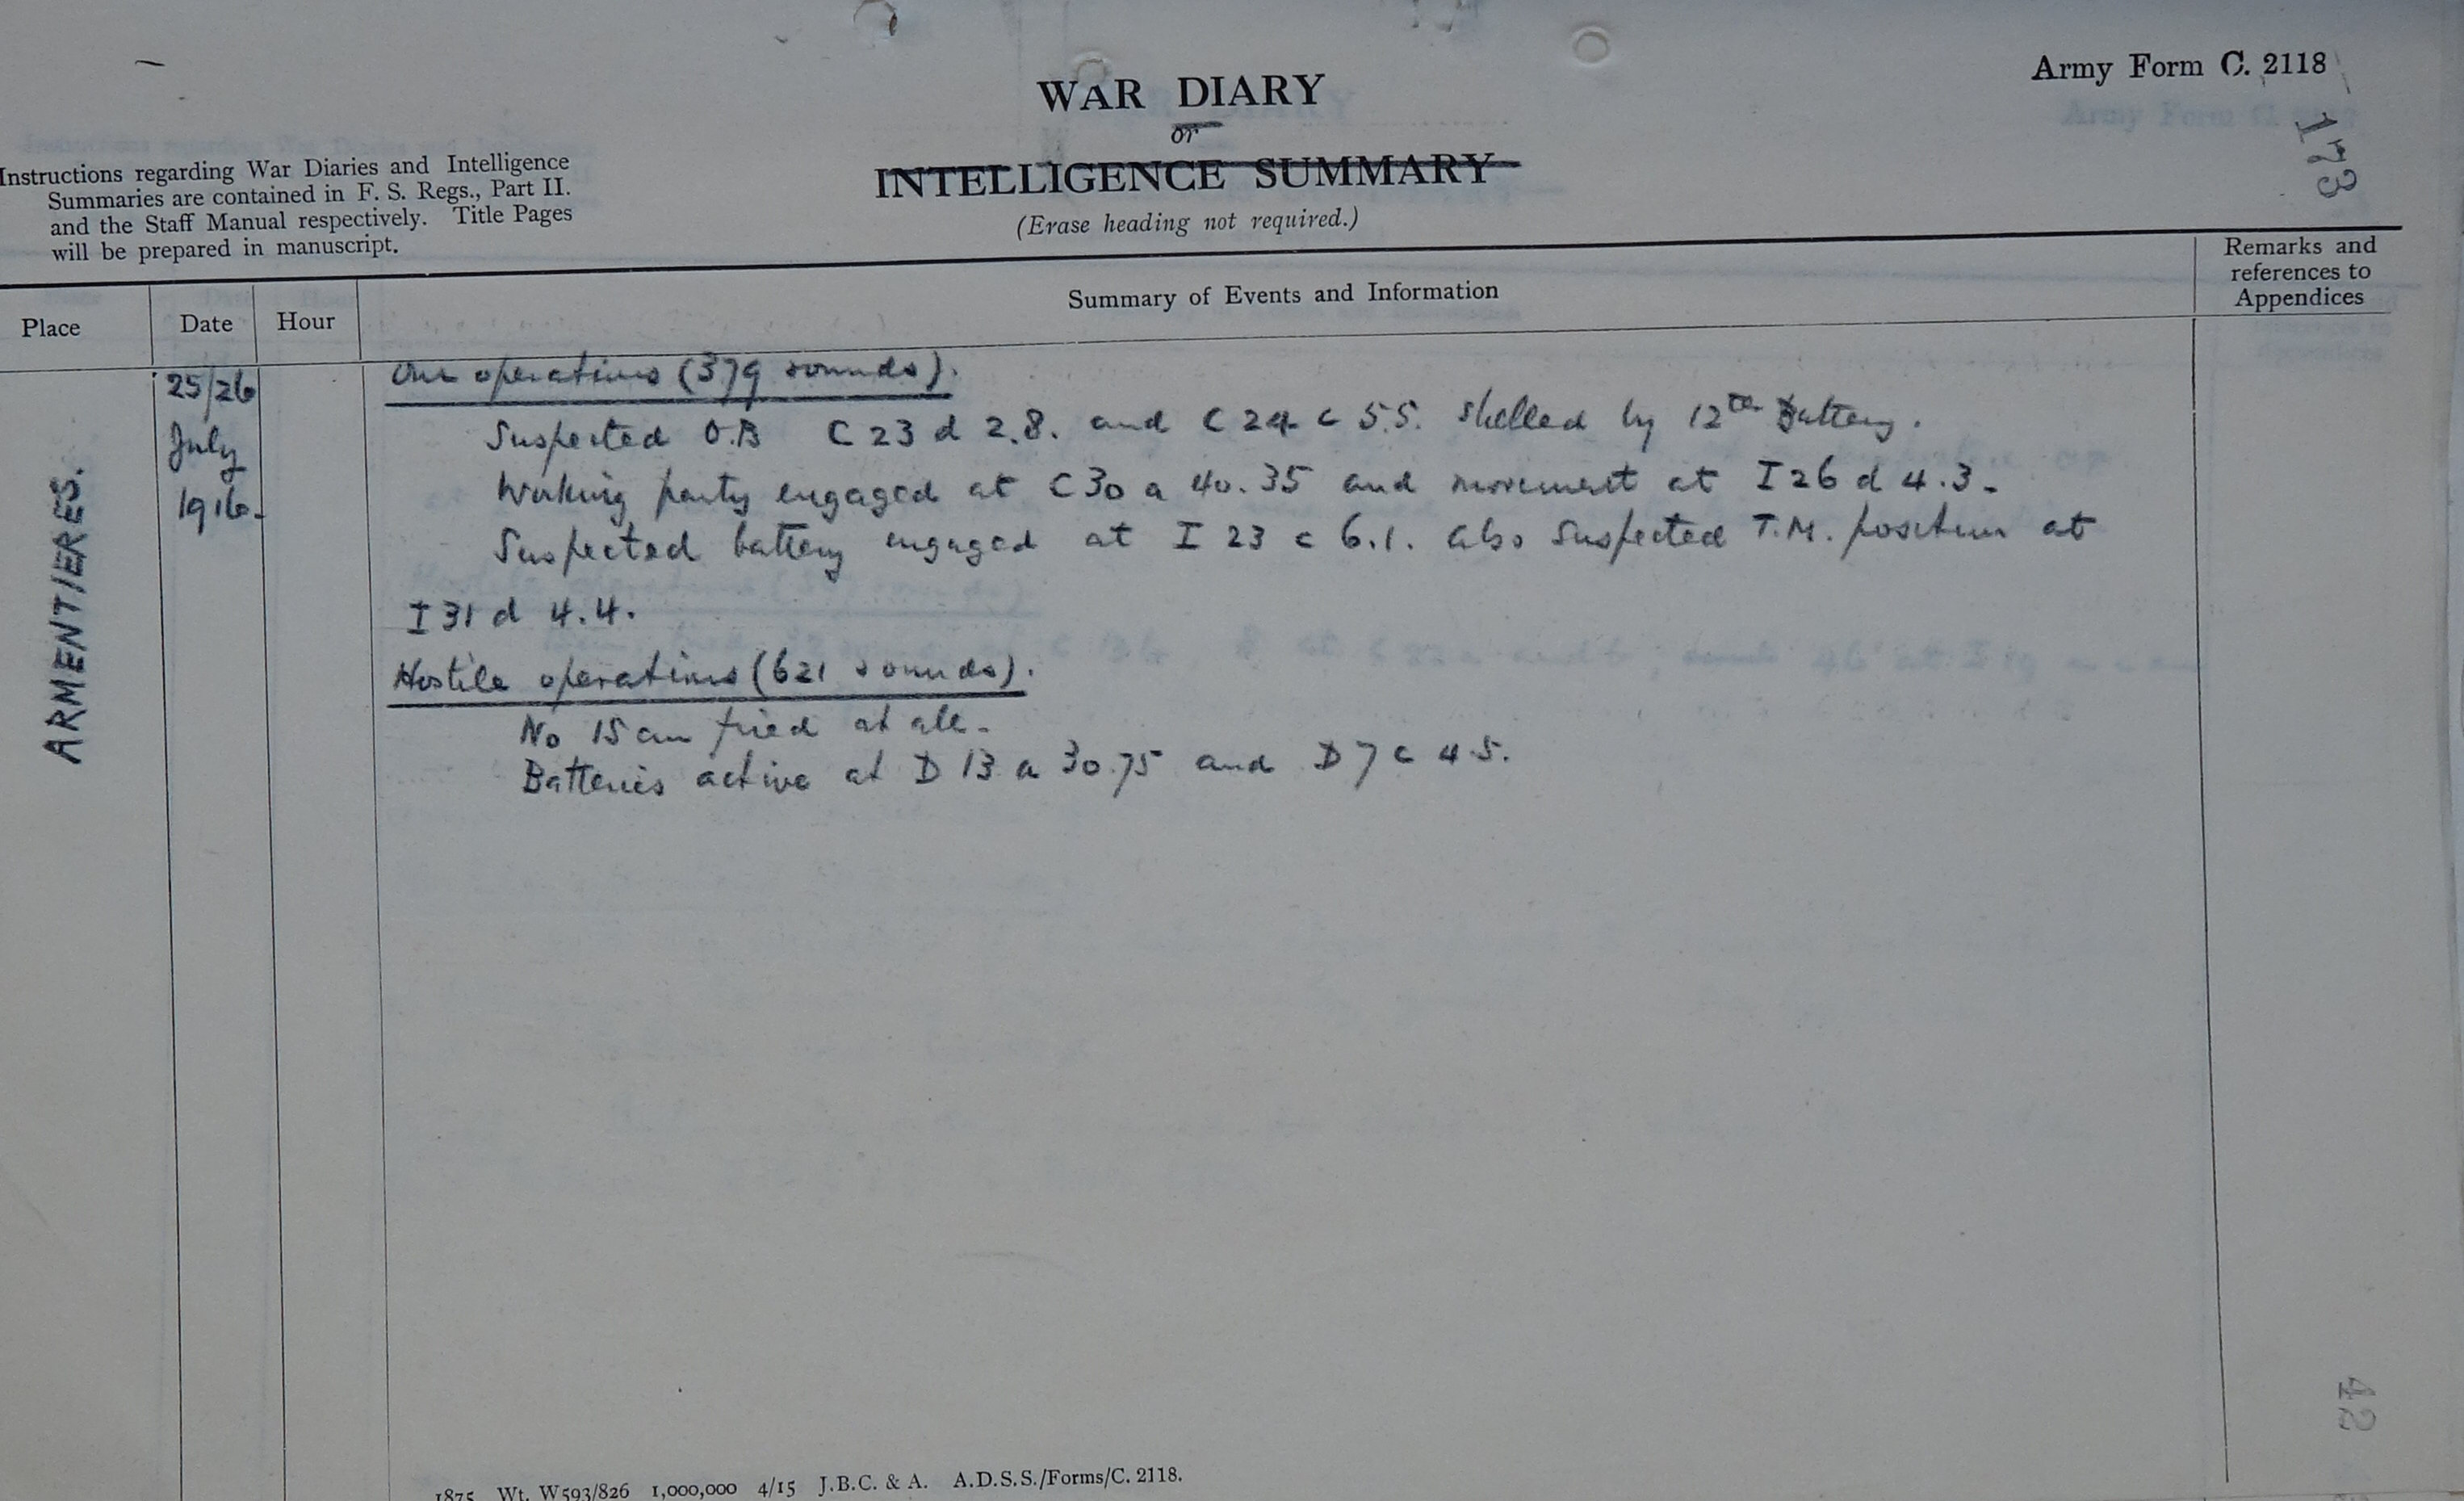 Army Form C. 2118
173
WAR DIARY
or
INTELLIGENCE SUMMARY
(Erase heading not required.)
Instructions regarding War Diaries and Intelligence
Summaries are contained in F. S. Regs., Part II.
and the Staff Manual respectively. Title Pages
will be prepared in manuscript.
Place
Date
Hour
Summary of Events and Information
Remarks and
references to
Appendices
ARMENTIERES.
25/26
July
1916.
Our operations (379 rounds).
Suspected O.B C 23 d 2.8. and C 24 c 5.5. shelled by 12th Battery.
Working party engaged at C 30 a 40.35 and movement at I 26 d 4.3.
Suspected battery engaged at I 23 c 6.1. also suspected T.M. position at
I 31 d 4.4.
Hostile operations (621 rounds).
No 15 cm fired at all.
Batteries active at D 13 a 30.75 and D 7 c 4.5.
42
1875 Wt. W593/826 1,000,000 4/15 J.B.C. & A. A.D.S.S./Forms/C. 2118.